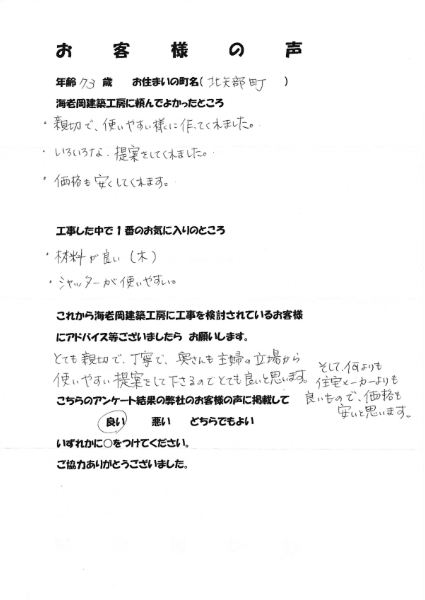 お客様の声
年齢 73 歳 お住まいの町名( 北矢部町 )
海老岡建築工房に頼んでよかったところ
・親切で、使いやすい様に作ってくれました。
・いろいろな、提案をしてくれました。
・価格も安くしてくれます。
工事した中で1番のお気に入りのところ
・材料が良い(木)
・シャッターが使いやすい。
これから海老岡建築工房に工事を検討されているお客様
にアドバイス等ございましたら お願いします。
とても親切で、丁寧で、奥さんも主婦の立場から
使いやすい提案をして下さるのでとても良いと思います。
そして、何よりも
住宅メーカーよりも
良いもので、価格も
安いと思います。
こちらのアンケート結果の弊社のお客様の声に掲載して
良い 悪い どちらでもよい
いずれかに○をつけてください。
ご協力ありがとうございました。